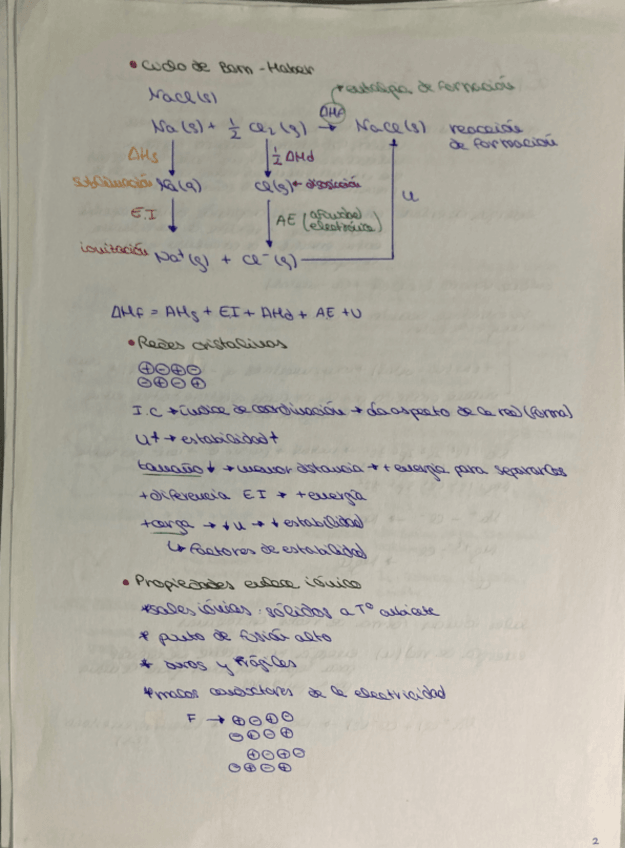 • Ciclo de Born-Haber
NaCl(s)
→ entalpía de formación
Na(s) + ½ Cl₂(g) → ΔHf NaCl(s) reacción de formación
ΔHs ½ ΔHd
sublimación Na(g) Cl(g) ← disociación U
E.I AE (afinidad electrónica)
ionización Na⁺(g) + Cl⁻(g)
ΔHf = ΔHs + EI + ΔHd + AE + U
• Redes cristalinas
⊕⊖⊕⊖
⊖⊕⊖⊕
I.C → índice de coordinación → da aspecto de la red (forma)
U↑ → estabilidad↑
tamaño ↓ → menor distancia → + energía para separarlos
+ diferencia EI → + energía
+ carga → ↓ U → ↓ estabilidad
↳ Factores de estabilidad
• Propiedades enlace iónico
* sales iónicas: sólidos a Tº ambiente
* punto de fusión alto
* duros y frágiles
* malos conductores de la electricidad
F → ⊕⊖⊕⊖
⊖⊕⊖⊕
⊕⊖⊕⊖
⊖⊕⊖⊕
2